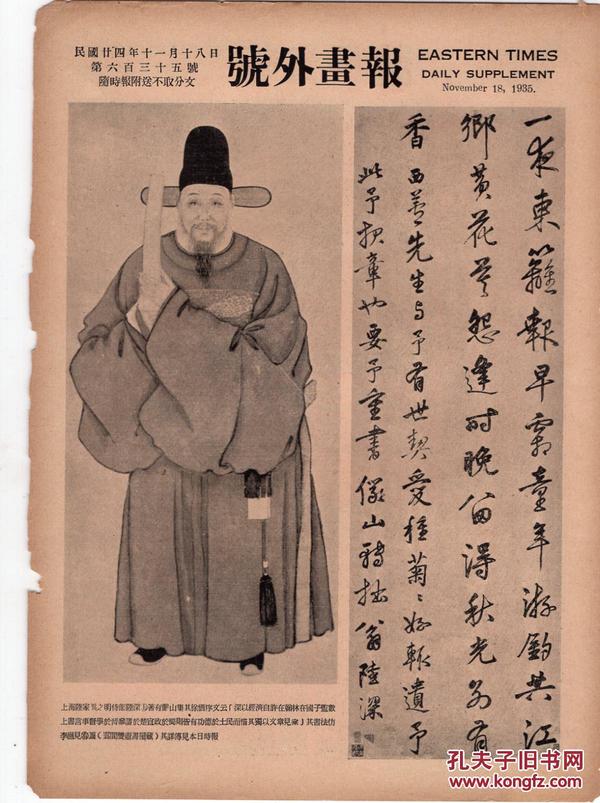 民國廿四年十一月十八日
第六百三十五號
隨時報附送不取分文
號外畫報
EASTERN TIMES
DAILY SUPPLEMENT
November 18, 1935.
一夜東籬報早霜童年游釣共江
鄉黃花莫怨逢時晚留得秋光另有
香 西菴先生与予有世契愛種菊〻始輒遺予
此予拙章也要予重書 儼山 拙翁陸深
上海陸家 之明侍郎陸深 著有儼山集其徐 序文云「深以經濟自許在翰林在國子監數
上書言事督學於 於楚宦政於蜀則皆有功德於士民而惜其獨以文章見 」其書法仿
李 見 （ ）其詳見本日時報
孔夫子旧书网
www.kongfz.com